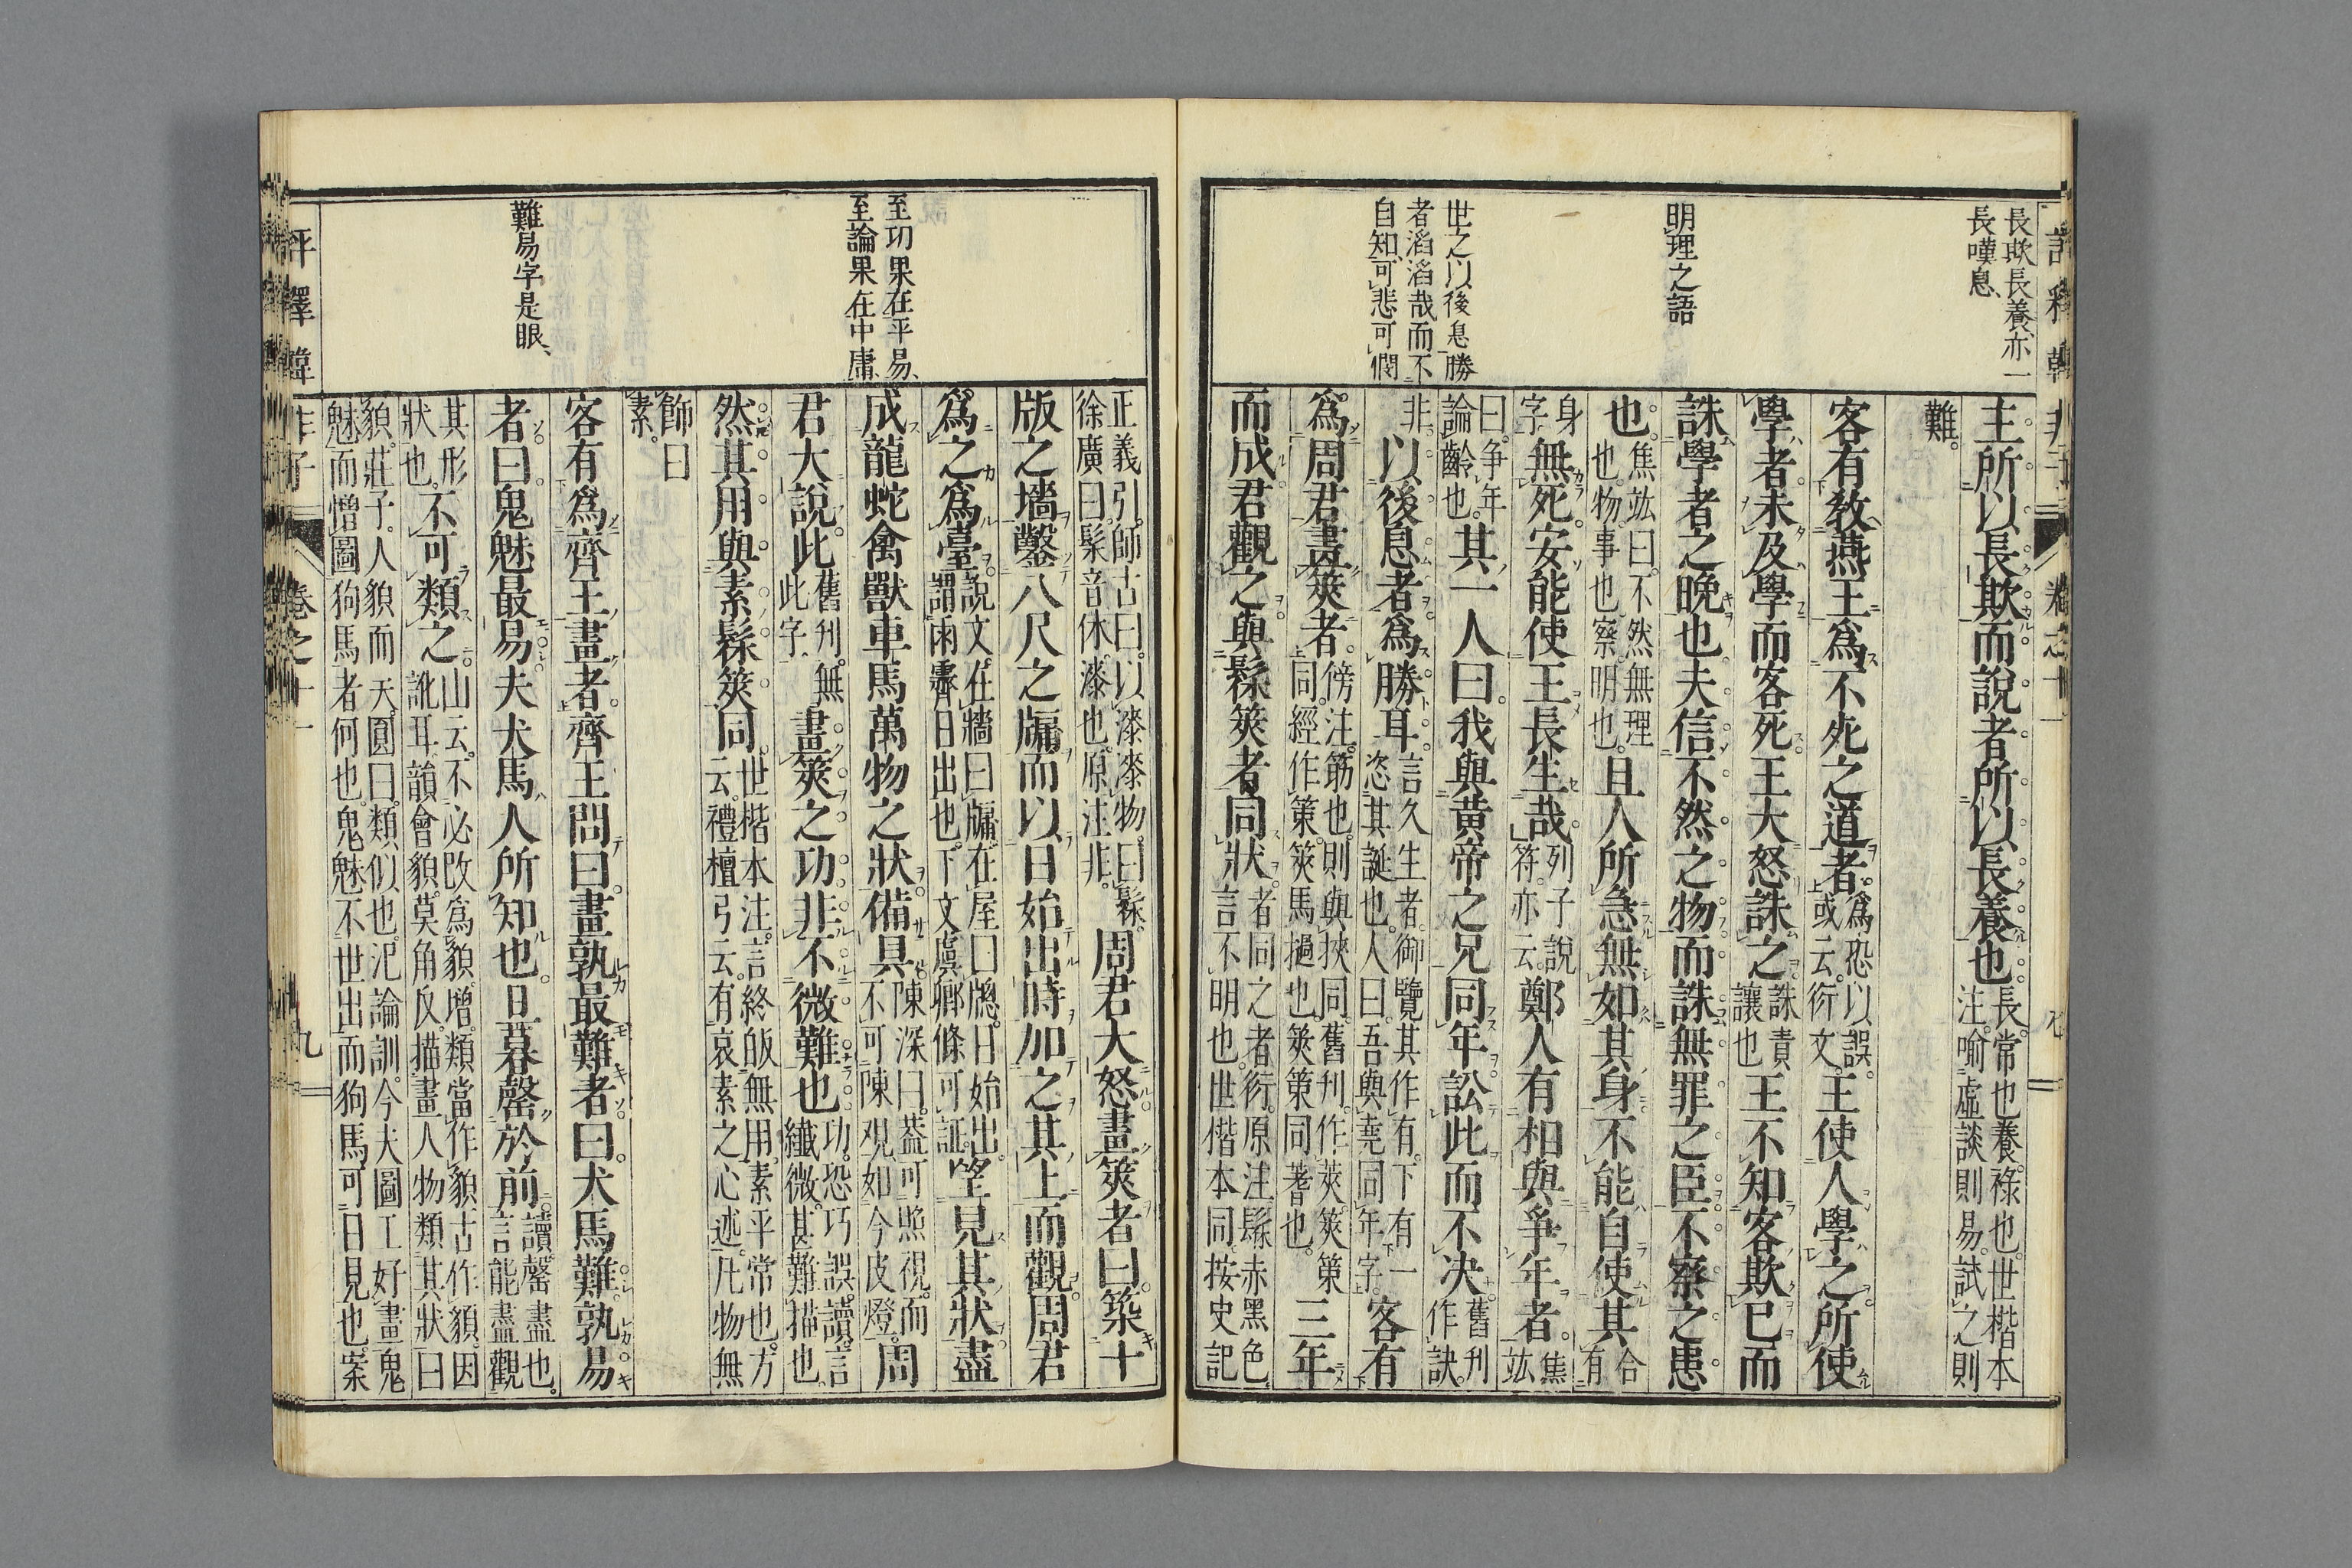 長欺長養亦一
長嘆息
明理之語
世之以後息勝
者滔滔哉而不
自知可悲可憫
主所以長欺而說者所以長養也長常也養祿也世楷本
注喻虛談則易試之則
難
客有敎燕王爲不死之道者爲恐以誤
或云衍文王使人學之所使
學者未及學而客死王大怒誅之誅責
讓也王不知客欺已而
誅學者之晚也夫信不然之物而誅無罪之臣不察之患
也焦竑曰不然無理
也物事也察明也且人所急無如其身不能自使其合
有
身
字無死安能使王長生哉列子說
符亦云鄭人有相與爭年者焦
竑
曰爭年
論齡也其一人曰我與黃帝之兄同年訟此而不决舊刊
作訣
非以後息者爲勝耳言久生者御覽其作有下有一
恣其誕也人曰吾與堯同年字客有
爲周君畫筴者傍注筋也則與挾同舊刊作莢筴策
同經作策筴馬撾也筴策同著也三年
而成君觀之與髹筴者同狀者同之者衍原注髹赤黑色
言不明也世偕本同按史記
至功果在平易
至論果在中庸
難易字是眼
正義引師古曰以漆漆物曰髹
徐廣曰髹音休漆也原注非周君大怒畫筴者曰築十
版之墻鑿八尺之牖而以日始出時加之其上而觀周君
爲之爲臺說文在牆曰牖在屋曰窻日始出
謂雨霽日出也下文虞卿條可証望見其狀盡
成龍蛇禽獸車馬萬物之狀備具陳深曰葢可照視而
不可陳观如今皮燈周
君大說此舊刊無
此字畫筴之功非不微難也功恐巧誤讀言
纖微甚難描也
然其用與素髹筴同世楷本注言終皈無用素平常也方
云禮檀弓云有哀素之心述凡物無
飾曰
素
客有爲齊王畫者齊王問曰畫孰最難者曰犬馬難孰易
者曰鬼魅最易夫犬馬人所知也旦暮罄於前讀罄盡也
言能盡觀
其形
狀也不可類之山云不必改爲貌增類當作貌古作䫉因
訛耳韻會貌莫角反描畫人物類其狀曰
貌莊子人貌而天圓曰類似也氾論訓今夫圖工好畫鬼
魅而憎圖狗馬者何也鬼魅不世出而狗馬可日見也案
評釋韓非子
卷之十一
九